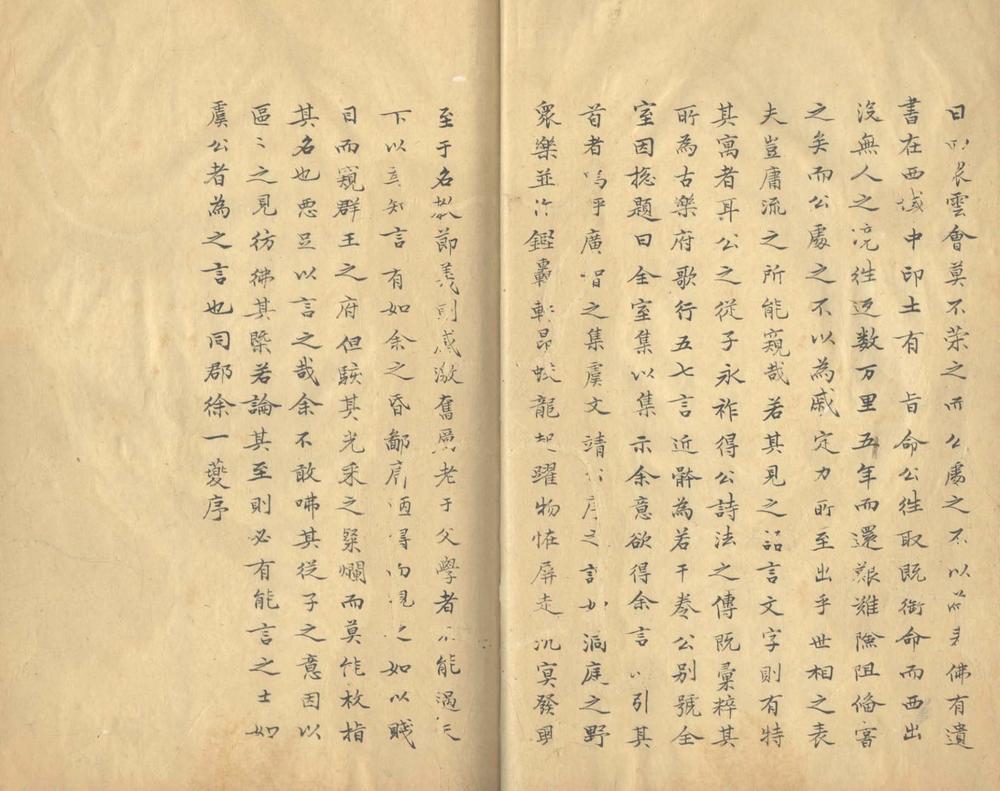 日 雲會莫不荣之而公處之不以 佛有遺
書在西域中印土有 旨命公往取既銜命而西出
没無人之境往返数万里五年而還艱難險阻俻甞
之矣而公處之不以為戚定力所至出乎世相之表
夫豈庸流之所能窺哉若其見之 言文字則有特
其寓者耳公之從子永祚得公詩法之傳既彙粹其
所為古樂府歌行五七言近體為若干卷公别號全
室因揔題曰全室集以集示余意欲得余言以引其
首者嗚乎廣 之集虞文靖公序之 如洞庭之野
衆樂並 鏗轟軒昂蛟龍起躍物怪屏走沉冥發
至于名教節義則感激奮厲老于父學者不能過矣
下以 知言有如余之昏鄙 之如以賤
目而窺群王之府但駭其光采之粲爛而莫能枚指
其名也悪足以言之哉余不敢咈其從子之意因以
區〻之見彷彿其槩若論其至則必有能言之士如
虞公者為之言也同郡徐一夔序